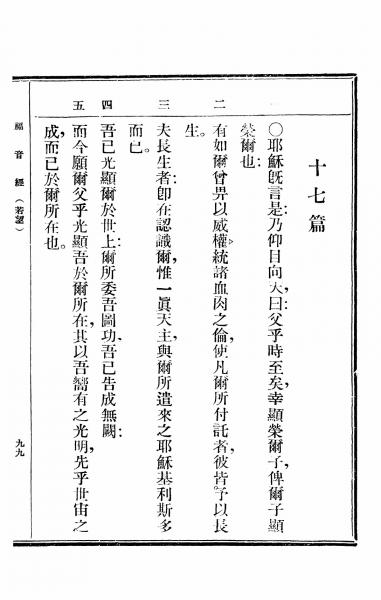 十七篇
一 ○耶穌既言是:乃仰目向天:曰父乎時至矣,幸顯榮爾子,俾爾子顯
榮爾也:
二 有如爾曾畀以威權,統諸血肉之倫,使凡爾所付託者,彼皆予以長
生。
三 夫長生者:卽在認識爾,惟一眞天主,與爾所遣來之耶穌基利斯多
而已。
四 吾已光顯爾於世上:爾所委吾圖功、吾已告成無闕:
五 而今願爾父乎光顯吾於爾所在,其以吾嚮有之光明,先乎世宙之
成,而已於爾所在也。
福音經(若望)
九九